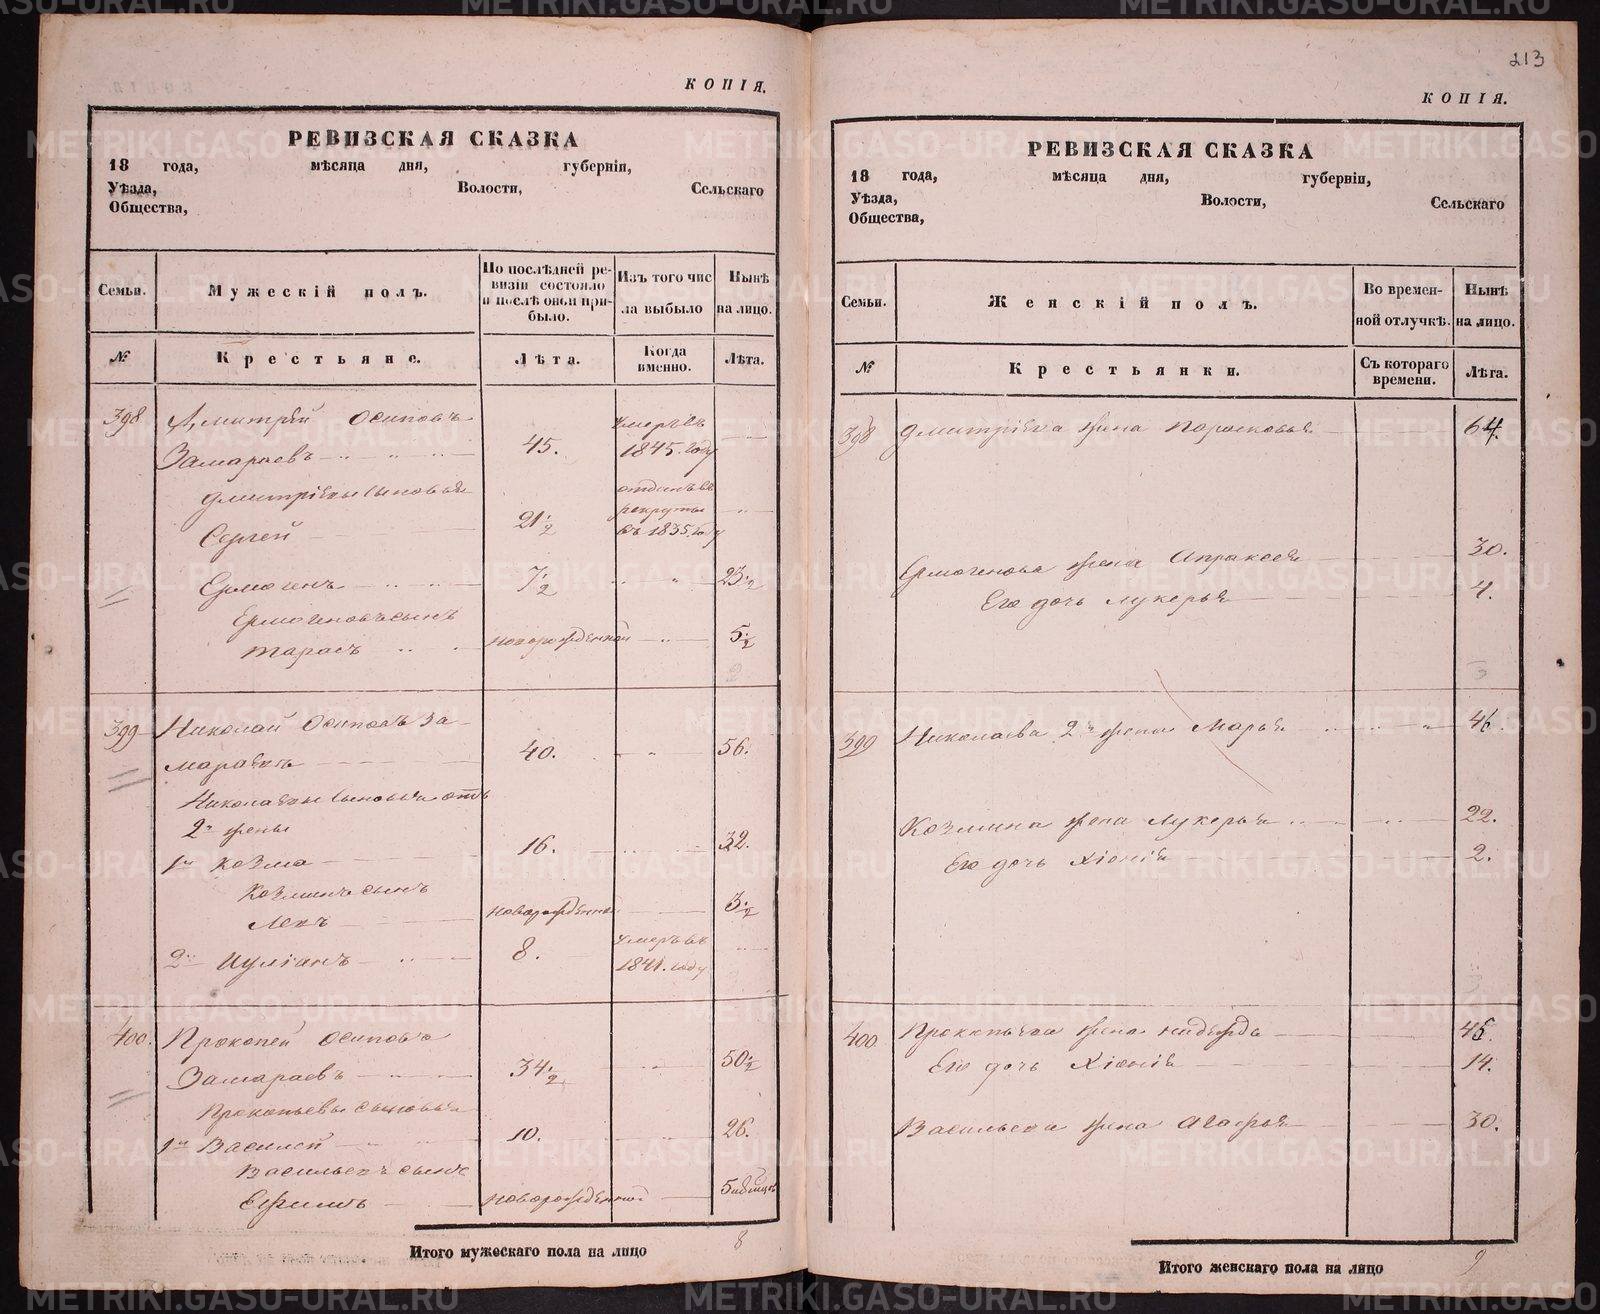 КОПІЯ.
РЕВИЗСКАЯ СКАЗКА
18 года, мѣсяца дня, губерніи,
Уѣзда, Волости, Сельскаго
Общества,
Семьи. Мужескій полъ. По послѣдней ревизіи состояло и послѣ оной прибыло. Изъ того числа выбыло Нынѣ на лицо.
№ Крестьяне. Лѣта. Когда именно. Лѣта.
398 Дмитрій Осиповъ умеръ въ
Замараевъ 45. 1845. году
Дмитріевы сыновья отданъ въ
Сергей 21 1/2 рекруты
въ 1835. году
Ермогенъ 7 1/2 23 1/2
Ермогеновъ сынъ
Тарасъ новорожденной 5 1/2
2
399 Николай Осиповъ За-
мараевъ 40. 56.
Николаевы сыновья отъ
2й жены
1й Козма 16. 32.
Козминъ сынъ
новорожденной 3 1/2
2й Иуліанъ 8. умеръ въ
1841. году
400. Прокопей Осиповъ
Замараевъ 34 1/2 50 1/2
Прокопьевы сыновья
1й Василей 10. 26.
Васильевъ сынъ
Ефимъ новорожденной 5
Итого мужескаго пола на лицо 8
213
КОПІЯ.
РЕВИЗСКАЯ СКАЗКА
18 года, мѣсяца дня, губерніи,
Уѣзда, Волости, Сельскаго
Общества,
Семьи. Женскій полъ. Во временной отлучкѣ. Нынѣ на лицо.
№ Крестьянки. Съ котораго времени. Лѣта.
398 Дмитріева жена Парасковья 64.
Ермогенова жена Апраксея 30.
Его дочь Лукерья 4.
3
399 Николаева 2я жена Марья 46.
Козмина жена Лукерья 22.
Его дочь Хіонія 2.
400 Прокопьева жена Надежда 45.
Его дочь Хіонія 14.
Васильева жена Агафья 30.
Итого женскаго пола на лицо 9
METRIKI.GASO-URAL.RU